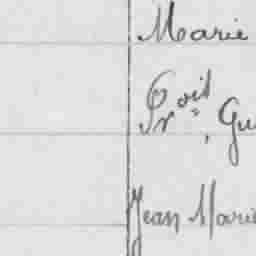 Marie
Fçoit, Gu
Jean Marie